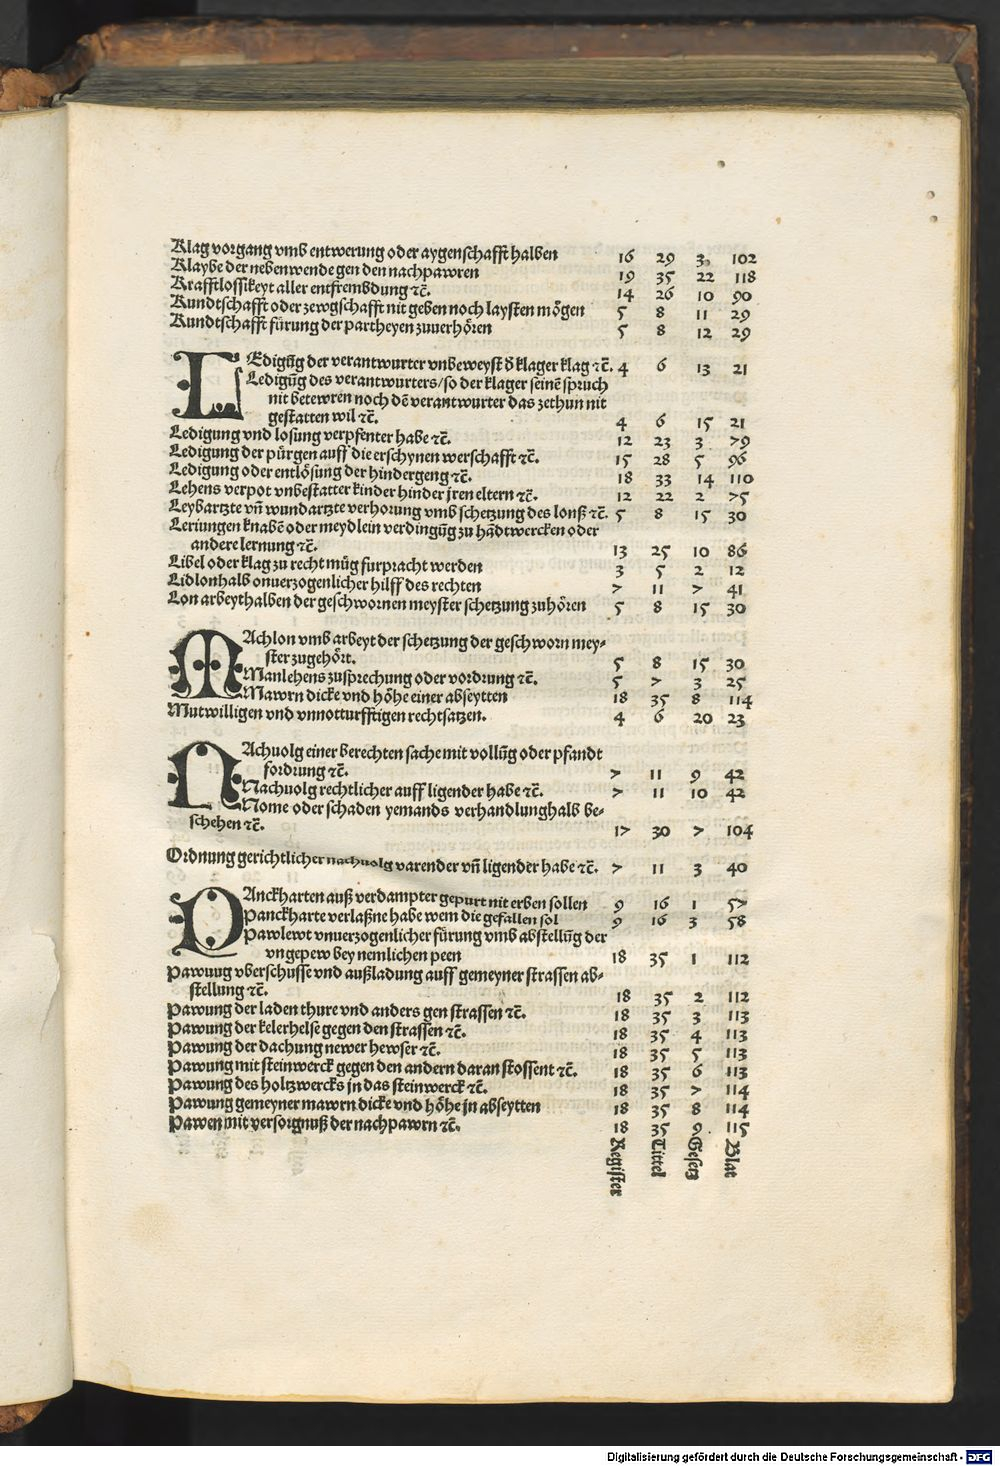 Klag vorgang vmb entwerung oder aygenschafft halben 16 29 3 102
Klaybe der neben wende gen den nachpawren 19 35 22 118
Krafftlossikeyt aller entfrembdung ⁊c̄. 14 26 10 90
Kundtschafft oder zewgschafft nit geben noch laysten mögen 5 8 11 29
Kundtschafft fürung der partheyen zuuerhören 5 8 12 29
LEdigūg der verantwurter vnbeweyst d̄ klager klag ⁊c̄. 4 6 13 21
Ledigūg des verantwurters/so der klager seinē spruch
nit betewren noch dē verantwurter das zethun nit
gestatten wil ⁊c̄. 4 6 15 21
Ledigung vnd losung verpfenter habe ⁊c̄. 12 23 3 79
Ledigung der pürgen auff die erschynen werschafft ⁊c̄. 15 28 5 96
Ledigung oder entlösung der hindergeng ⁊c̄. 18 33 14 110
Lehens verpot vnbestatter kinder hinder jren eltern ⁊c̄. 12 22 2 75
Leybartzte vn̄ wundartzte verhorung vmb schetzung des lonß ⁊c̄. 5 8 15 30
Leriungen knabē oder meydlein verdingūg zu hādtwercken oder
andere lernung ⁊c̄. 13 25 10 86
Libel oder klag zu recht müg furpracht werden 3 5 2 12
Lidlonhalb onuerzogenlicher hilff des rechten 7 11 7 41
Lon arbeythalben der geschwornen meyster schetzung zuhören 5 8 15 30
MAchlon vmb arbeyt der schetzung der geschworn mey-
ster zugehört. 5 8 15 30
Manlehens zusprechung oder vordrung ⁊c̄. 5 7 3 25
Mawrn dicke vnd höhe einer abseytten 18 35 8 114
Mutwilligen vnd vnnotturfftigen rechtsatzen. 4 6 20 23
NAchuolg einer berechten sache mit vollūg oder pfandt
fordrung ⁊c̄. 7 11 9 42
Nachuolg rechtlicher auff ligender habe ⁊c̄. 7 11 10 42
Nome oder schaden yemands verhandlunghalb be-
schehen ⁊c̄. 17 30 7 104
Ordnung gerichtlicher nachuolg varender vn̄ ligender habe ⁊c̄. 7 11 3 40
PAnckharten auß verdampter gepurt nit erben sollen 9 16 1 57
Panckharte verlaßne habe wem die gefallen sol 9 16 3 58
Pawlewt vnuerzogenlicher fürung vmb abstellūg der
vngepew bey nemlichen peen 18 35 1 112
Pawuug vberschusse vnd außladung auff gemeyner strassen ab-
stellung ⁊c̄. 18 35 2 112
Pawung der laden thure vnd anders gen strassen ⁊c̄. 18 35 3 113
Pawung der kelerhelse gegen den strassen ⁊c̄. 18 35 4 113
Pawung der dachung newer hewser ⁊c̄. 18 35 5 113
Pawung mit steinwerck gegen den andern daran stossent ⁊c̄. 18 35 6 113
Pawung des holtzwercks jn das steinwerck ⁊c̄. 18 35 7 114
Pawung gemeyner mawrn dicke vnd höhe jn abseytten 18 35 8 114
Pawen mit versorgnuß der nachpawrn ⁊c̄. 18 35 9 115
Register Tittel Gesetz Blat
Digitalisierung gefördert durch die Deutsche Forschungsgemeinschaft - DFG